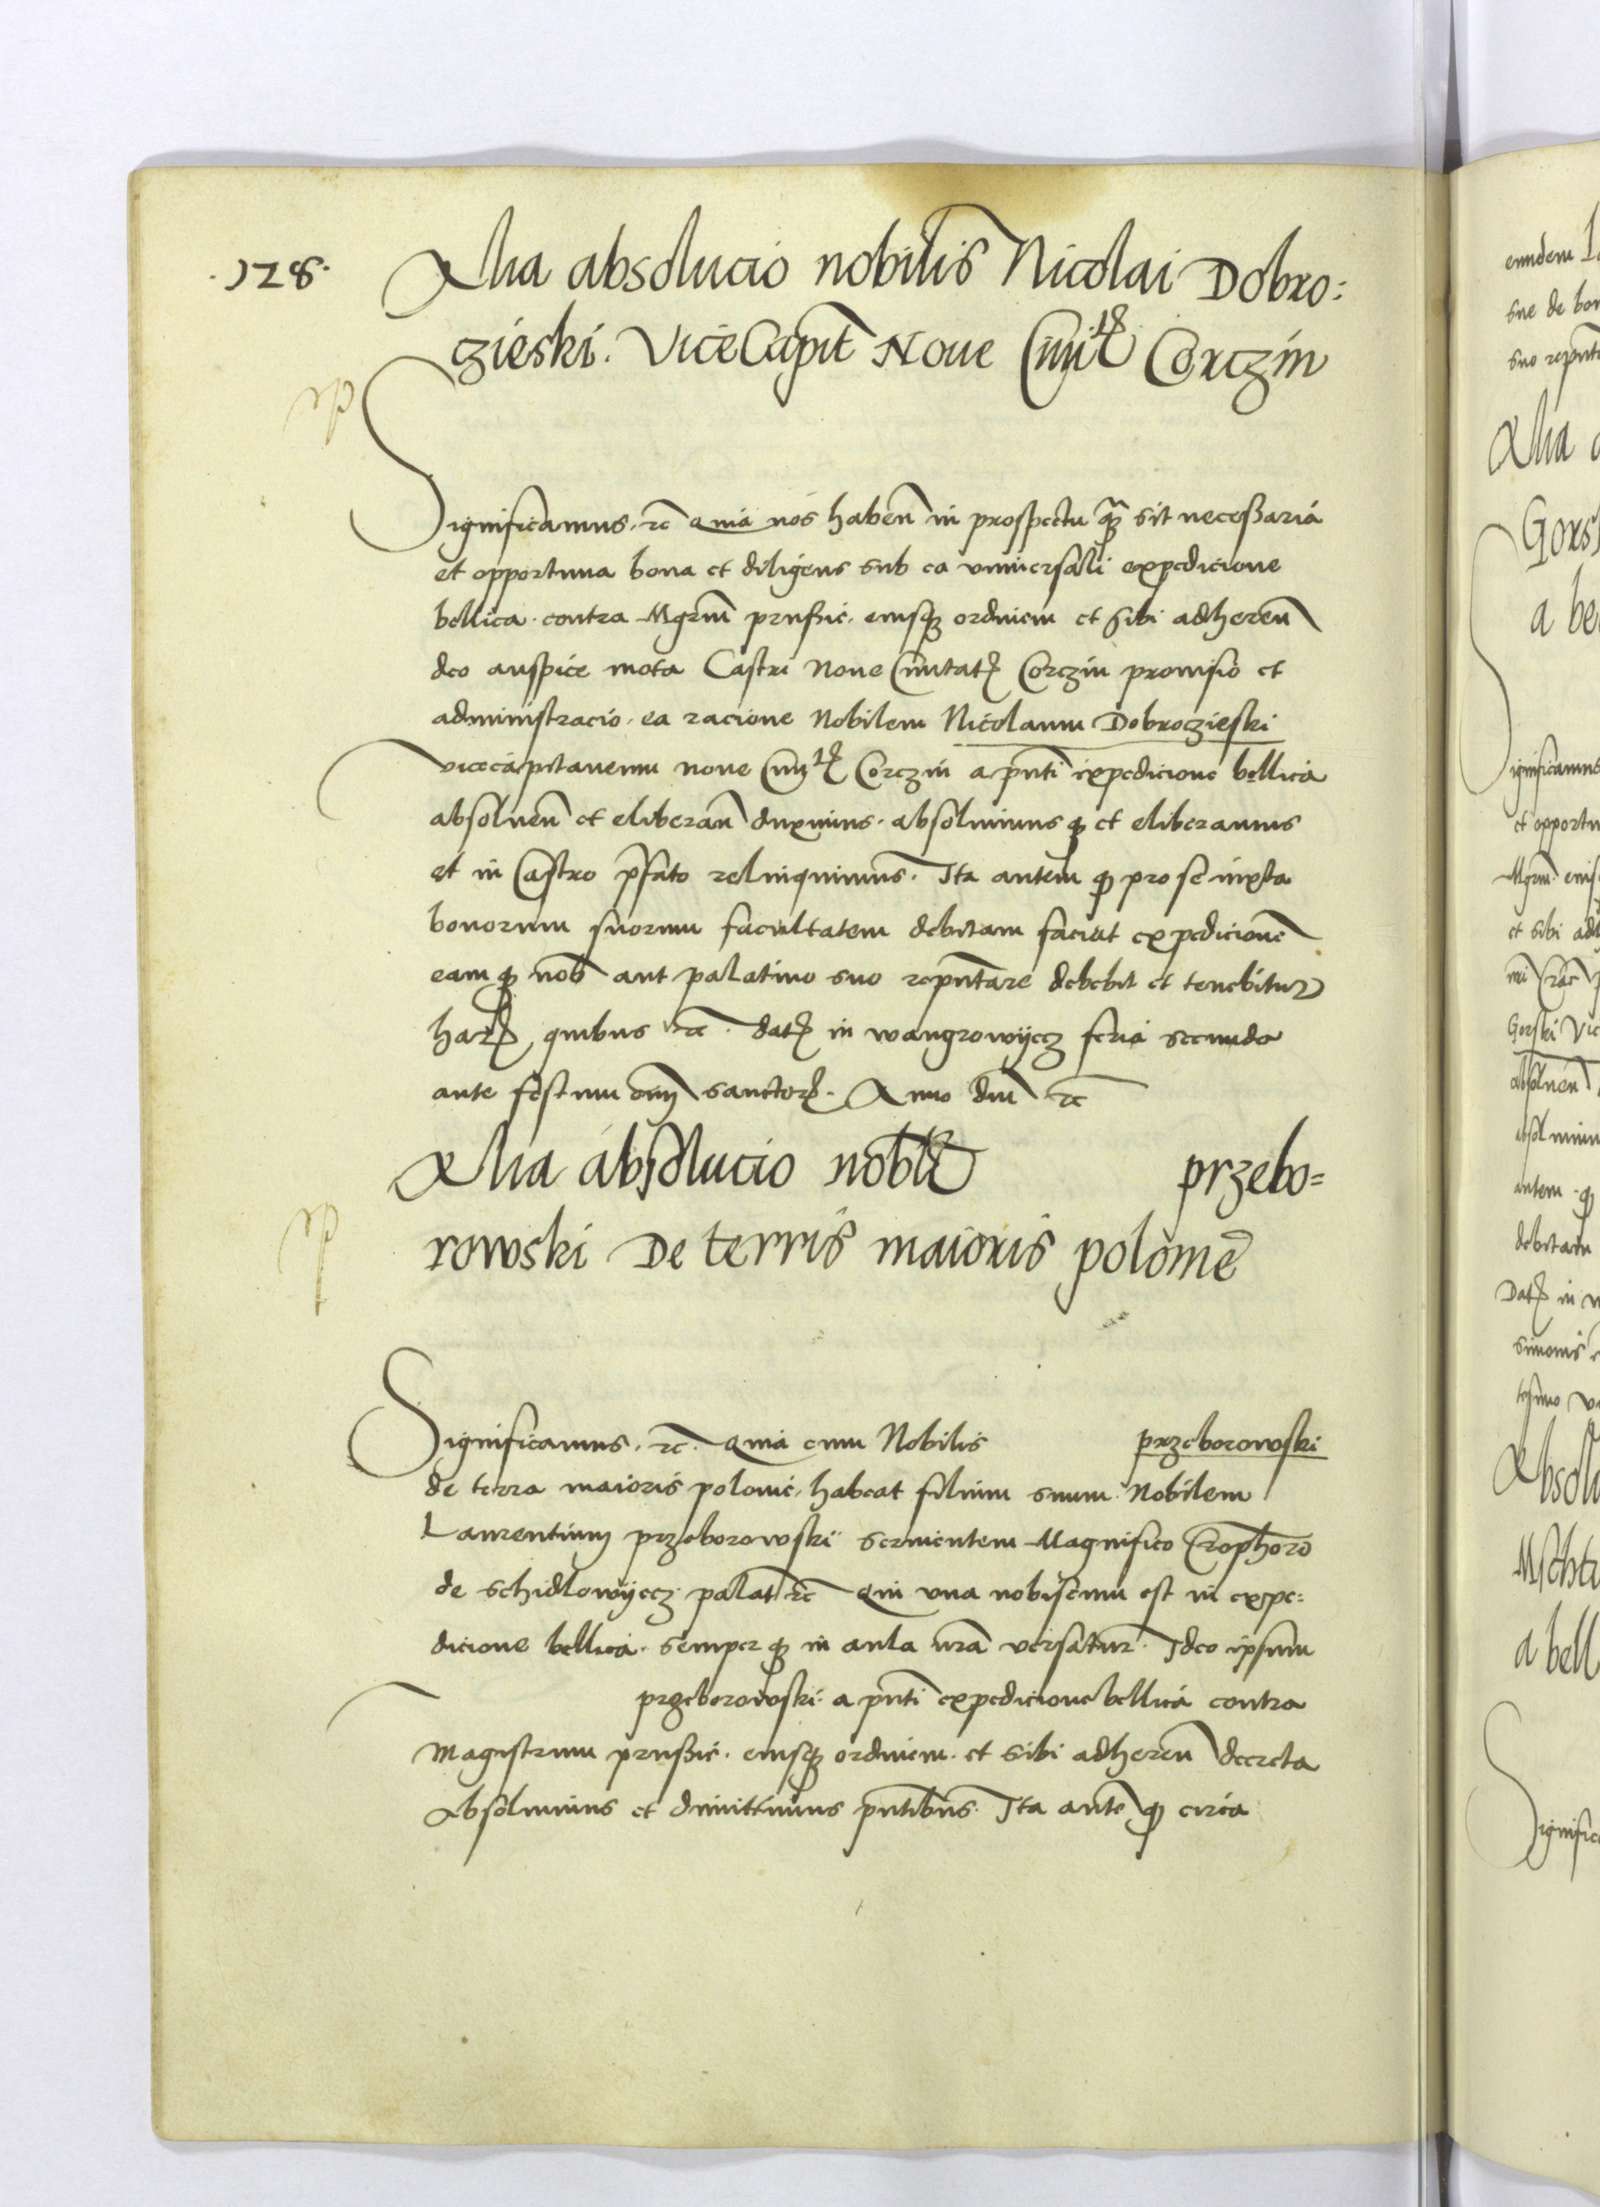 ·128·
Alia absolucio nobilis Nicolai Dobro:
czieski. ViceCapit Noue Ciuit Corczin
Significamus. rc̄ quia nos haben̄ in prospectu q̄ sit necessaria
et opportuna bona et diligens sub ea vniuersali expedicione
bellica. contra Mgrm̄ prussie. eiusq ordinem et sibi adheren̄
deo auspice mota Castri Noue Ciuitat Corczin prouisio et
administracio. ea racione Nobilem Nicolaum Dobroczieski
vicecapitaneum noue Ciuit Corczin a pn̄ti expedicione bellica
absoluen̄ et eliberan̄ duximus. absoluimusq et eliberamus
et in Castro p̄fato relinquimus. Ita autem q pro se iuxta
bonorum suorum facultatem debitam faciat expedicionē
eamq nob̄ aut palatino suo repn̄tare debebit et tenebitur
har quibus rc̄. dat in wangrowijecz feria secunda
ante festum om̄ sanctor. Anno dn̄i rc̄
Alia absolucio nobil przebo=
rowski De terris maioris polonie
Significamus. rc̄. quia cum Nobilis przeborowski
de terra maioris polonie. habeat filium suum Nobilem
Laurentium przeborowski seruientem Magnifico Cropthoro
de schidlowijecz palat rc̄ qui vna nobiscum est in expe:
dicione bellica. semperq in aula nr̄a versatur. Ideo ipsum
przeborowski a pn̄ti expedicione bellica contra
Magistrum prussie. eiusq ordinem. et sibi adheren̄ decreta
Absoluimus et dimittimus pn̄tibus. Ita autē q circa